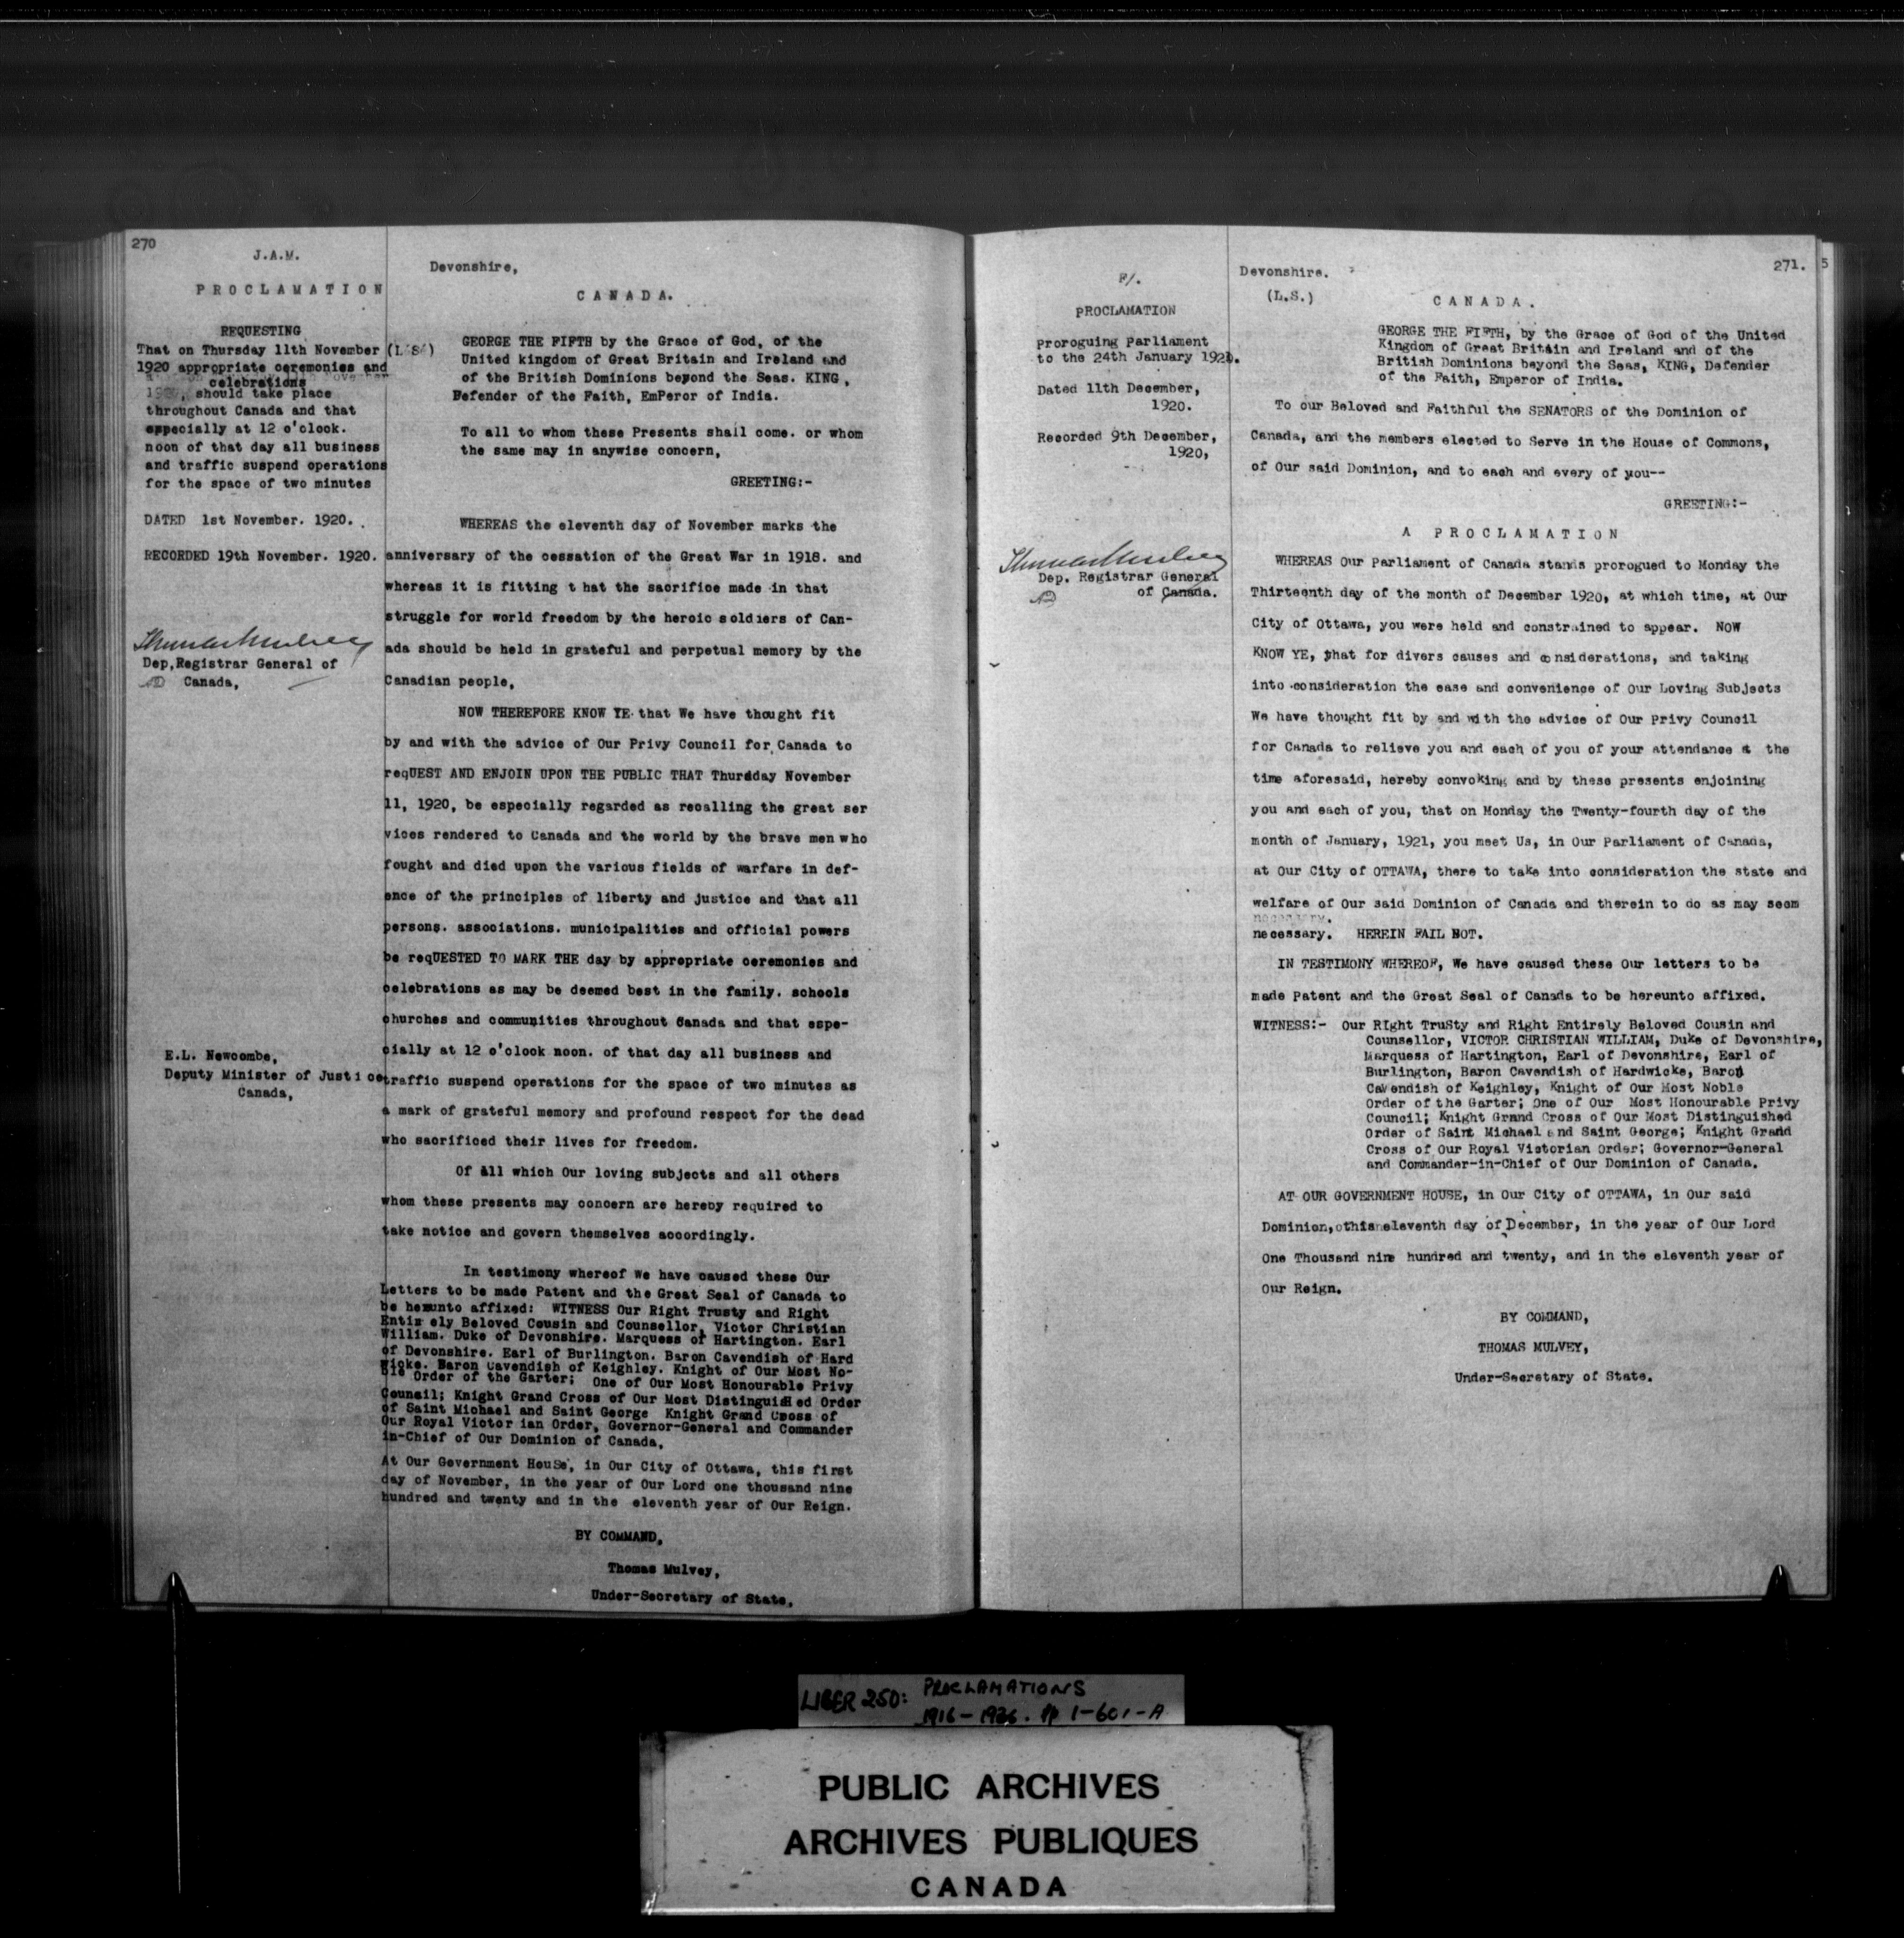 270
J.A.M.
PROCLAMATION
REQUESTING
That on Thursday 11th November
1920 appropriate ceremonies and
celebrations
, should take place
throughout Canada and that
especially at 12 o'clock.
noon of that day all business
and traffic suspend operations
for the space of two minutes
DATED 1st November. 1920.
RECORDED 19th November. 1920.
Dep,Registrar General of
Canada,
E.L. Newcombe,
Deputy Minister of Justice
Canada,
Devonshire,
CANADA.
(L.S.)
GEORGE THE FIFTH by the Grace of God, of the
United kingdom of Great Britain and Ireland and
of the British Dominions beyond the Seas. KING,
Defender of the Faith, EmPeror of India.
To all to whom these Presents shall come. or whom
the same may in anywise concern,
GREETING:-
WHEREAS the eleventh day of November marks the
anniversary of the cessation of the Great War in 1918. and
whereas it is fitting t hat the sacrifice made in that
struggle for world freedom by the heroic soldiers of Can-
ada should be held in grateful and perpetual memory by the
Canadian people,
NOW THEREFORE KNOW YE that We have thought fit
by and with the advice of Our Privy Council for Canada to
reqUEST AND ENJOIN UPON THE PUBLIC THAT Thursday November
11, 1920, be especially regarded as recalling the great ser
vices rendered to Canada and the world by the brave men who
fought and died upon the various fields of warfare in def-
ence of the principles of liberty and justice and that all
persons. associations. municipalities and official powers
be reqUESTED TO MARK THE day by appropriate ceremonies and
celebrations as may be deemed best in the family. schools
churches and communities throughout Canada and that espe-
cially at 12 o'clock noon. of that day all business and
traffic suspend operations for the space of two minutes as
a mark of grateful memory and profound respect for the dead
who sacrificed their lives for freedom.
Of all which Our loving subjects and all others
whom these presents may concern are hereby required to
take notice and govern themselves accordingly.
In testimony whereof We have caused these Our
Letters to be made Patent and the Great Seal of Canada to
be hereunto affixed: WITNESS Our Right Trusty and Right
Entir ely Beloved Cousin and Counsellor, Victor Christian
William. Duke of Devonshire. Marquess of Hartington. Earl
of Devonshire. Earl of Burlington. Baron Cavendish of Hard
wicke. Baron Cavendish of Keighley. Knight of Our Most No-
ble Order of the Garter; One of Our Most Honourable Privy
Council; Knight Grand Cross of Our Most Distinguished Order
of Saint Michael and Saint George Knight Grand Cross of
Our Royal Victor ian Order, Governor-General and Commander
in-Chief of Our Dominion of Canada,
At Our Government HouSe, in Our City of Ottawa, this first
day of November, in the year of Our Lord one thousand nine
hundred and twenty and in the eleventh year of Our Reign.
BY COMMAND,
Thomas Mulvey,
Under-Secretary of State,
271.
5
F/.
PROCLAMATION
proroguing Parliament
to the 24th January 1921.
Dated 11th December,
1920.
Recorded 9th December,
1920,
Dep. Registrar General
of Canada.
Devonshire.
(L.S.)
CANADA.
GEORGE THE FIFTH, by the Grace of God of the United
Kingdom of Great Britain and Ireland and of the
British Dominions beyond the Seas, KING, Defender
of the Faith, Emperor of India.
To our Beloved and Faithful the SENATORS of the Dominion of
Canada, and the members elected to Serve in the House of Commons,
of Our said Dominion, and to each and every of you--
GREETING:-
A PROCLAMATION
WHEREAS Our Parliament of Canada stands prorogued to Monday the
Thirteenth day of the month of December 1920, at which time, at Our
City of Ottawa, you were held and constrained to appear. NOW
KNOW YE, that for divers causes and considerations, and taking
into consideration the ease and convenience of Our Loving Subjects
We have thought fit by and with the advice of Our Privy Council
for Canada to relieve you and each of you of your attendance at the
time aforesaid, hereby convoking and by these presents enjoining
you and each of you, that on Monday the Twenty-fourth day of the
month of January, 1921, you meet Us, in Our Parliament of Canada,
at Our City of OTTAWA, there to take into consideration the state and
welfare of Our said Dominion of Canada and therein to do as may seem
necessary. HEREIN FAIL NOT.
IN TESTIMONY WHEREOF, We have caused these Our letters to be
made Patent and the Great Seal of Canada to be hereunto affixed.
WITNESS:- Our RIght TruSty and Right Entirely Beloved Cousin and
Counsellor, VICTOR CHRISTIAN WILLIAM, Duke of Devonshire,
Marquess of Hartington, Earl of Devonshire, Earl of
Burlington, Baron Cavendish of Hardwicke, Baron
Cavendish of Keighley, Knight of Our Most Noble
Order of the Garter; One of Our Most Honourable Privy
Council; Knight Grand Cross of Our Most Distinguished
Order of Saint Michael and Saint George; Knight Grand
Cross of Our Royal Victorian Order; Governor-General
and Commander-in-Chief of Our Dominion of Canada.
AT OUR GOVERNMENT HOUSE, in Our City of OTTAWA, in Our said
Dominion, this eleventh day of December, in the year of Our Lord
One Thousand nine hundred and twenty, and in the eleventh year of
Our Reign.
BY COMMAND,
THOMAS MULVEY,
Under-Secretary of State.
LIBER 250: PROCLAMATIONS
1916-1926. pp 1-601-A
PUBLIC ARCHIVES
ARCHIVES PUBLIQUES
CANADA